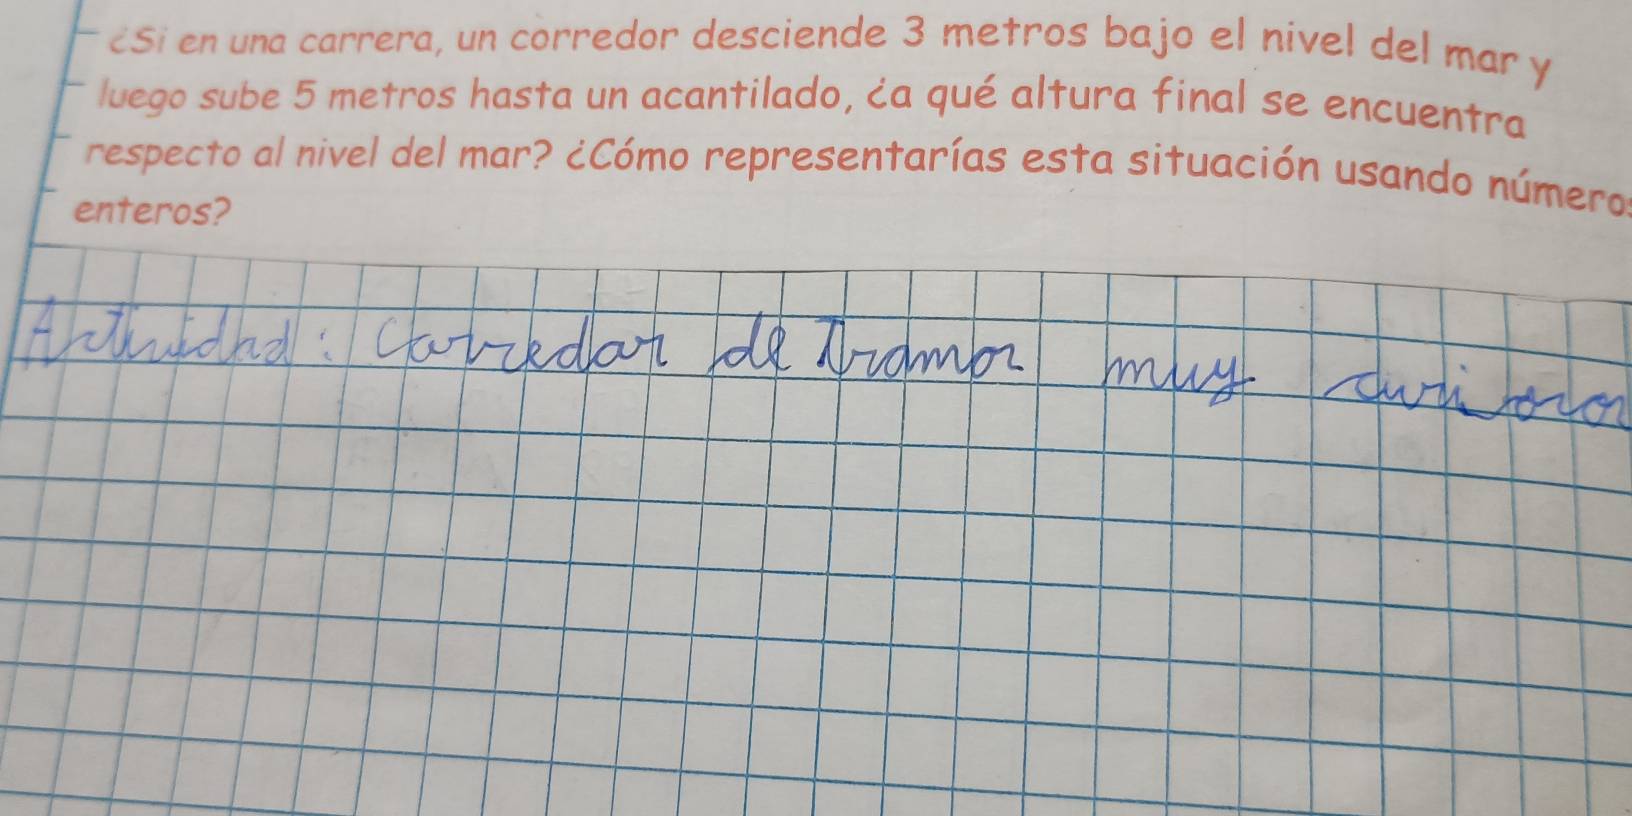 ¿Si en una carrera, un corredor desciende 3 metros bajo el nivel del mar y
luego sube 5 metros hasta un acantilado, ¿a qué altura final se encuentra
respecto al nivel del mar? ¿Cómo representarías esta situación usando números
enteros?
Actividad: Corredor de muy